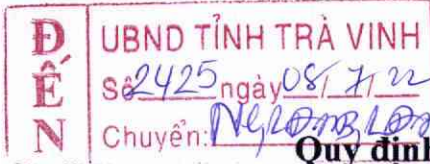 ĐẾN
UBND TỈNH TRÀ VINH
Số 2425 ngày 08/7/22
Chuyển:
Quy định